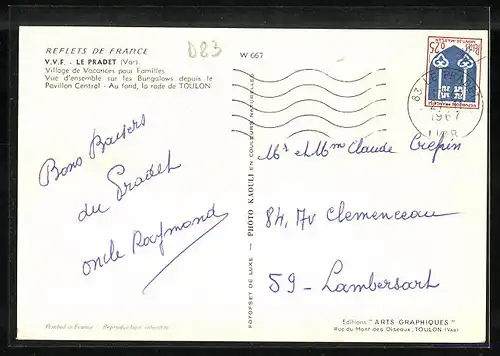 REFLETS DE FRANCE
D83
W 667
V.V.F. - LE PRADET (Var).
Village de Vacances pour Familles
Vue d'ensemble sur les Bungalows depuis le
Pavillon Central - Au fond, la rade de TOULON
0,25
83 LE PRADET
1967
VAR
Bons Baisers
du Pradet
oncle Raymond
Mr et Mme Claude Crépin
84, av Clemenceau
59 - Lambersart
FOTOFSET DE LUXE — PHOTO KAOULI EN COULEURS NATURELLES
Printed in France - Reproduction interdite
Editions "ARTS GRAPHIQUES"
Rue du Mont des Oiseaux, TOULON (Var)